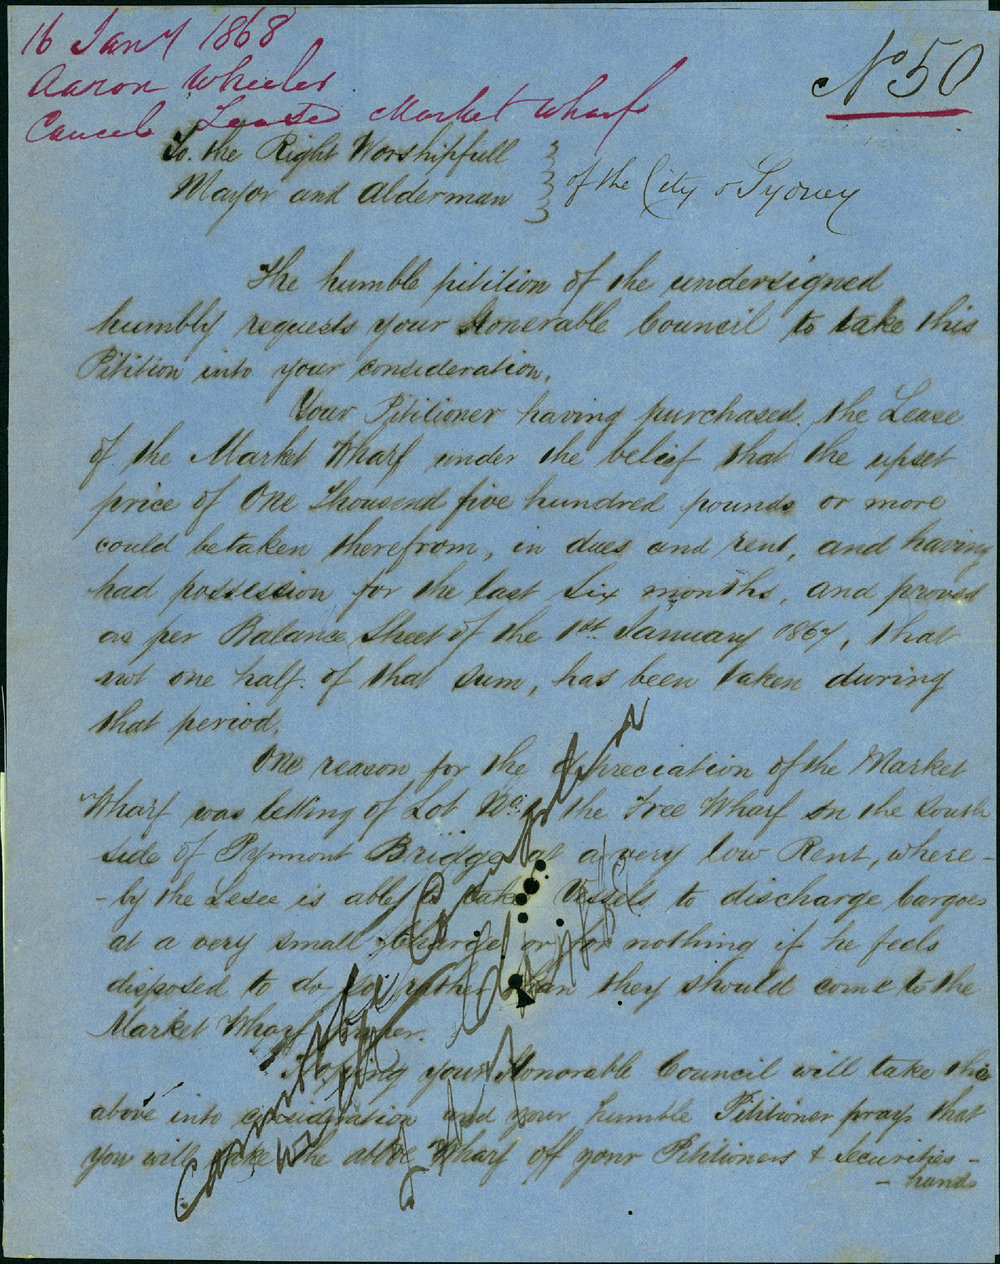 16 Jany 1868
Aaron Wheeler
Cancel Lease Market Wharf
No 50
To. the Right Worshipfull
Mayor and Alderman
of the City o Sydney
The humble pitition of the undersigned
humbly requests your Honerable Council to take this
Pitition into your consideration.
Your Pititioner having purchased. the Lease
of the Market Wharf under the belief that the upset
price of One Thousend five hundred pounds or more
could betaken therefrom, in dues and rent, and having
had possession for the last six months, and proved
as per Balance Sheet of the 1st January 1867, that
not one half. of that sum, has been taken during
that period.
One reason for the depreciation of the Market
Wharf was letting of Lot No. the Free Wharf on the South
side of Pyrmont Bridge at a very low Rent, where-
-by the Lesee is able to take Vessels to discharge cargoes
at a very small charge or for nothing if he feels
disposed to do so, rather than they should come to the
Market Wharf proper.
Hoping your Honorable Council will take the
above into consideration and your humble Pititioner prays that
you will take the above Wharf off your Pititioners & Securities -
- hands